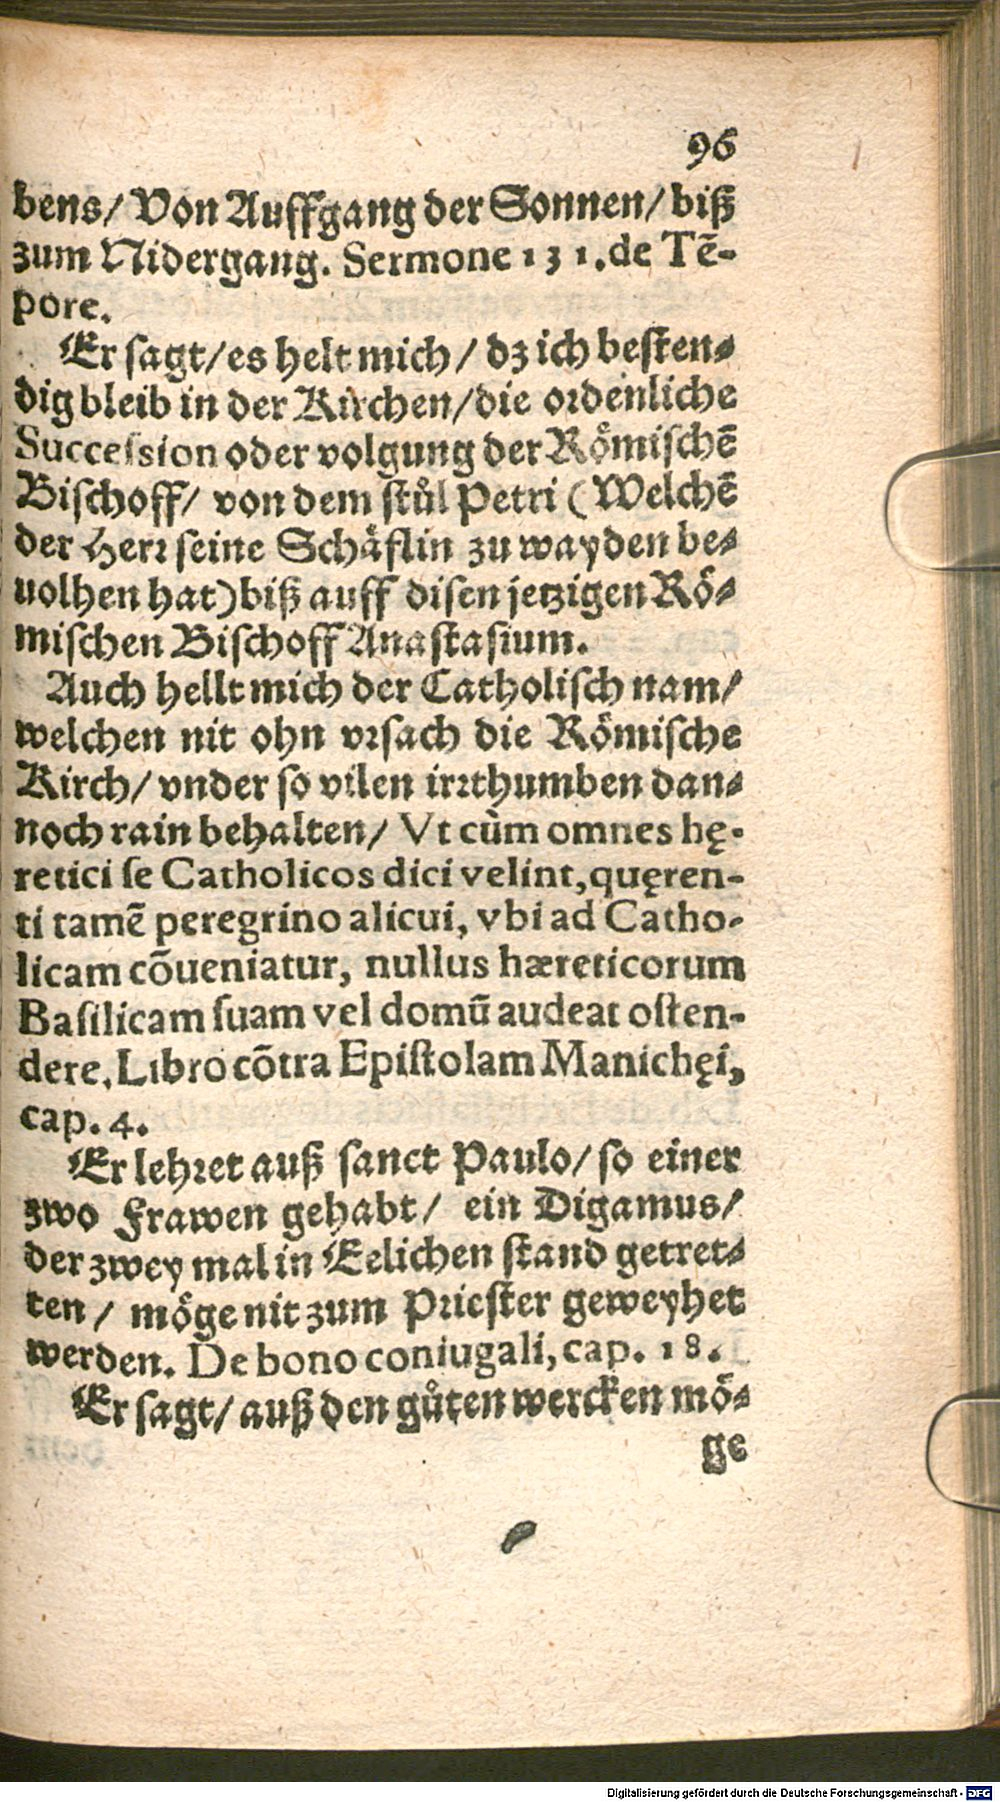 96
bens/ Von Auffgang der Sonnen/ biß
zum Nidergang. Sermone 131. de Tẽ-
pore.
Er sagt/ es helt mich/ dz ich besten-
dig bleib in der Kirchen/ die ordenliche
Succession oder volgung der Römischẽ
Bischoff/ von dem stůl Petri (Welchẽ
der Herr seine Schäflin zu wayden be-
uolhen hat) biß auff disen jetzigen Rö-
mischen Bischoff Anastasium.
Auch hellt mich der Catholisch nam/
welchen nit ohn vrsach die Römische
Kirch/ vnder so vilen irrthumben dan-
noch rain behalten/ Vt cùm omnes hę-
retici se Catholicos dici velint, quęren-
ti tamẽ peregrino alicui, vbi ad Catho-
licam cõueniatur, nullus hæreticorum
Basilicam suam vel domũ audeat osten-
dere. Libro cõtra Epistolam Manichęi,
cap. 4.
Er lehret auß sanct Paulo/ so einer
zwo Frawen gehabt/ ein Digamus/
der zwey mal in Eelichen stand getret-
ten/ möge nit zum Priester geweyhet
werden. De bono coniugali, cap. 18.
Er sagt/ auß den gůten wercken mö-
ge
Digitalisierung gefördert durch die Deutsche Forschungsgemeinschaft - DFG